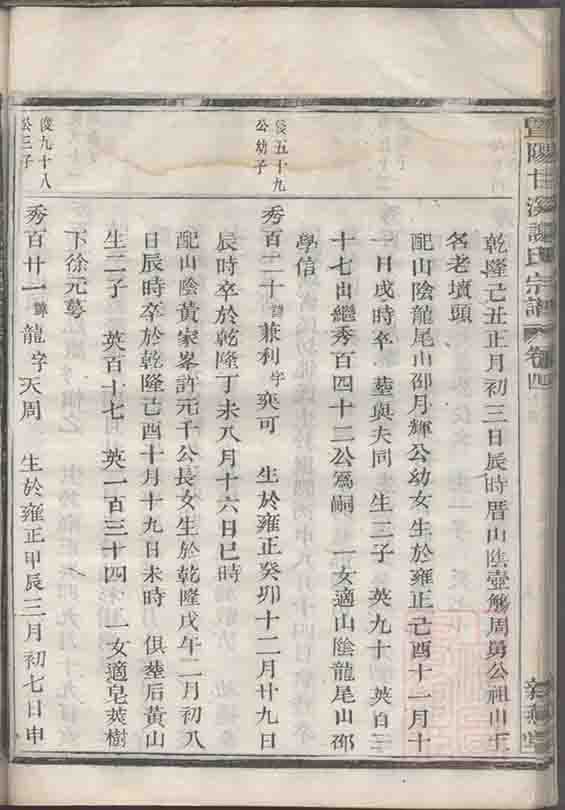 暨陽甘溪謝氏宗譜 卷四
乾隆己丑正月初三日辰時厝山陰壺觴周舅公祖山土
名老墳頭
配山陰龍尾山邵月輝公幼女生於雍正己酉十一月十
一日戌時卒 塟與夫同 生三子 英九十 英百三
十七出繼秀百四十三公爲嗣 一女適山陰龍尾山邵
學信
俊五十九
公幼子
秀百二十諱兼利字奕可 生於雍正癸卯十二月廿九日
辰時卒於乾隆丁未八月十六日巳時
配山陰黃家峯許元千公長女生於乾隆戊午二月初八
日辰時卒於乾隆己酉十月十九日未時 俱塟后黃山
生二子 英百十七 英一百三十四 一女適皂莢樹
下徐元蕚
俊九十八
公三子
秀百廿一諱龍字天周 生於雍正甲辰三月初七日申